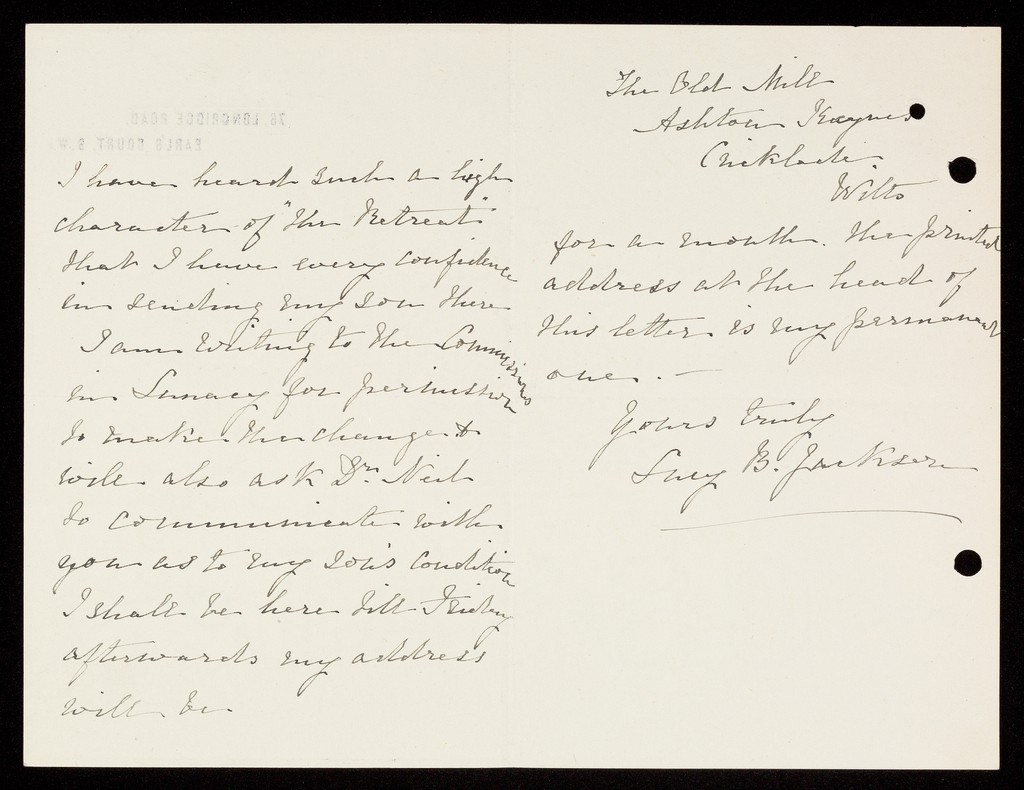 76, LONGRIDGE ROAD,
EARLS COURT, S.W.
I have heard such a high
character of "The Retreat"
that I have every confidence
in sending my son there
I am writing to the Commissioners
in Lunacy for permission
to make the change &
will also ask Dr. Neil
to communicate with
you as to my son's condition
I shall be here till Friday
afterwards my address
will be
The Old Mill
Ashton Keynes
Cricklade
Wilts
for a month. The printed
address at the head of
this letter is my permanent
one. —
Yours truly
Lucy B. Jackson